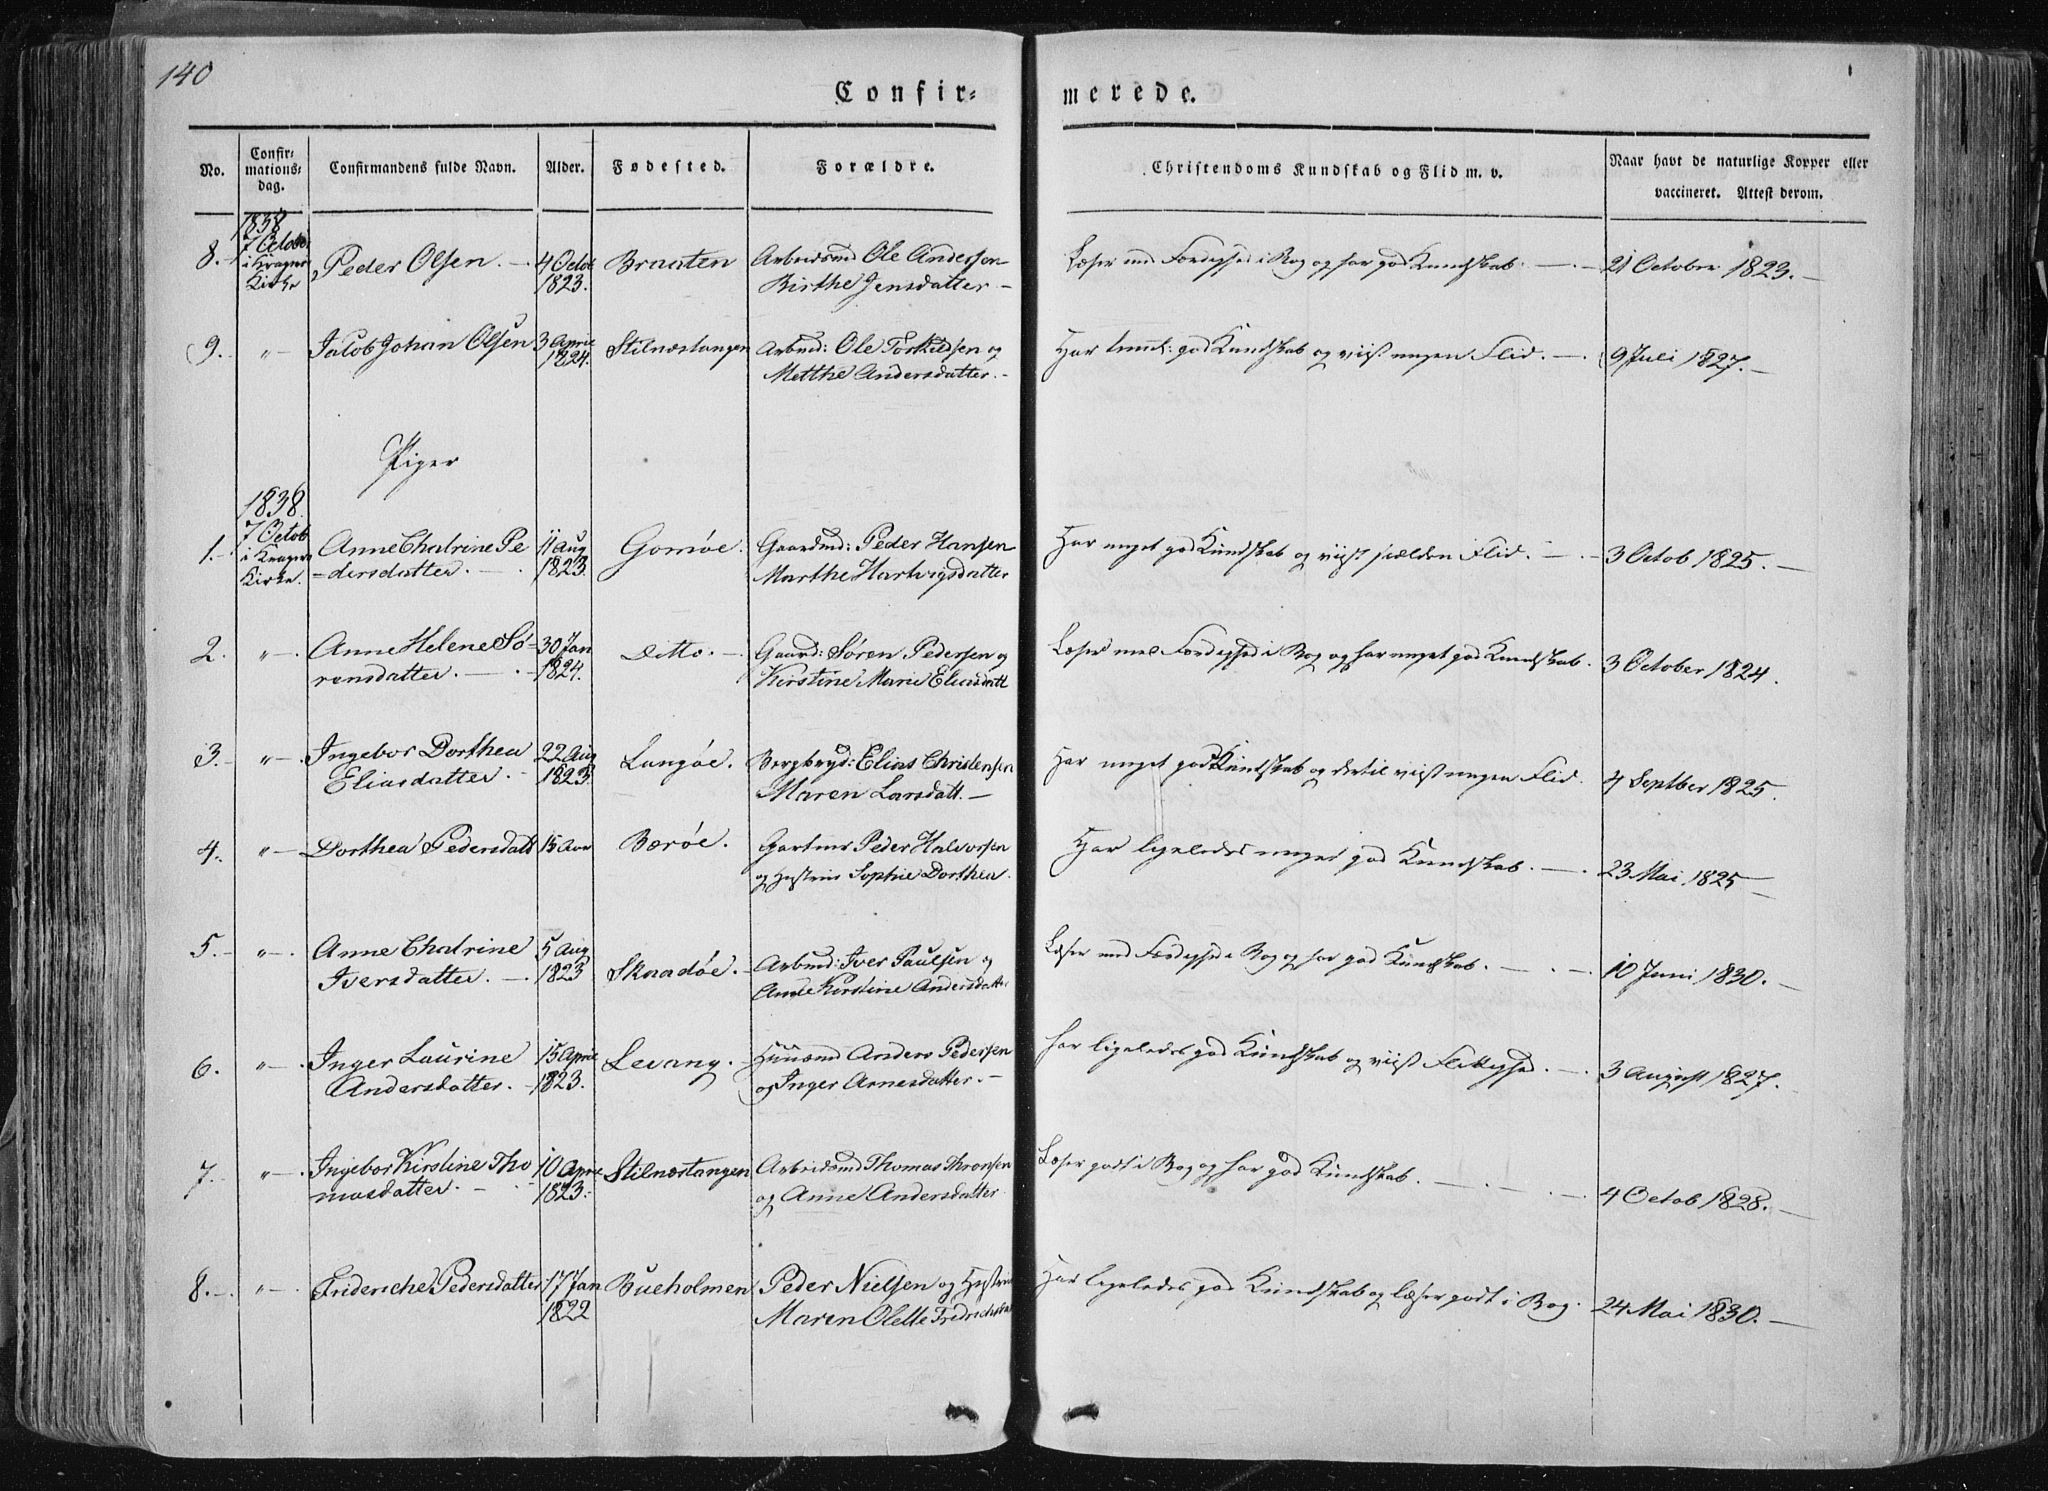 140
Confir= merede.
No. Confir=mations=dag. Confirmandens fulde Navn. Alder. Fødested. Forældre. Christendoms Kundskab og Flid m. v. Naar havt de naturlige Kopper eller vaccineret. Attest derom.
1838
8. 7 Octobr i Kragerø Kirke Peder Olsen. 4 Octob 1823. Braaten Arbeidsmd Ole Andersen Birthe Jensdatter Læser med Færdighed i Bog og har god Kundskab. 21 October 1823.
9. " Jacob Johan Olsen 3 April 1824. Stilnæstangen Arbmd: Ole Torkildsen og Metthe Andersdatter. Har teml: god Kundskab og viist megen Flid. 9 Juli 1827.
Piger
1838.
1. 7 Octob i Kragerø Kirke. Anne Chatrine Pe-dersdatter. 11 Aug 1823. Gomøe. Gaardmd: Peder Hansen Marthe Hartvigsdatter Har meget god Kundskab og viist sielden Flid. 3 Octob 1825.
2. " Anne Helene Sø-rensdatter. 30 Jan 1824. Ditto. Gaard: Søren Pedersen og Kirstine Marie Eliasdatt Læser med Færdighed i Bog og har meget god Kundskab. 3 October 1824.
3. " Ingebor Dorthea Eliasdatter. 22 Aug 1823. Langøe. Bergbryd: Elias Christensen Maren Larsdatt. Har meget god Kundskab og dertil viist megen Flid. 4 Septber 1825.
4. " Dorthea Pedersdatt 15 Aar Bærøe. Gartner Peder Halvorsen og Hustrue Sophie Dorthea. Har ligeledes meget god Kundskab. 23 Mai 1825
5. " Anne Chatrine Iversdatter. 5 Aug 1823 Skaadøe. Arbmd: Iver Paulsen og Anne Kirstine Andersdatter Læser med Færdighed i Bog og har god Kundskab. 10 Juni 1830.
6. " Inger Laurine Andersdatter. 15 April 1823. Levang. Huusmd Anders Pedersen og Inger Arnesdatter. Har ligeledes god Kundskab og viist Flittighed. 3 August 1827.
7. " Ingebor Kirstine Tho-masdatter. 10 April 1823. Stilnæstangen Arbeidsmd Thomas Thronsen og Anne Andersdatter Læser godt i Bog og har god Kundskab. 4 Octob 1828.
8. " Friderche Pedersdatter 17 Jan 1822 Bueholmen Peder Nielsen og Hustrue Maren Olette Fredrichsdat Har ligeledes god Kundskab og læser godt i Bog. 24 Mai 1830.